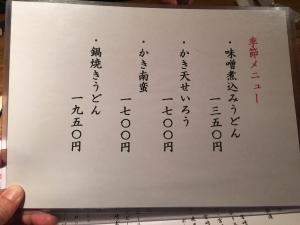 季節メニュー
・味噌煮込みうどん
一三五〇円
・かき天せいろう
一七〇〇円
・かき南蛮
一七〇〇円
・鍋焼きうどん
一九五〇円